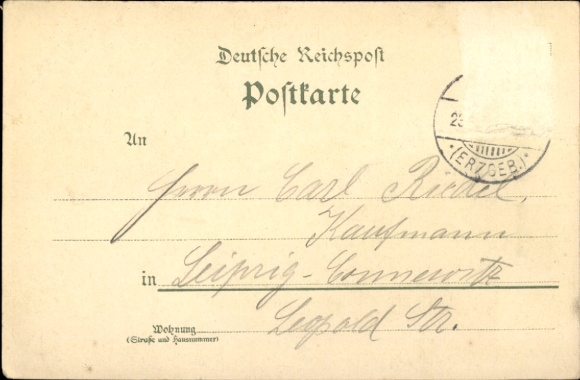 Deutsche Reichspost
Postkarte
23
*(ERZGEB.)*
An
Herrn Carl Riedel,
Kaufmann
in Leipzig-Connewitz
Leopold Str.
Wohnung
(Straße und Hausnummer)